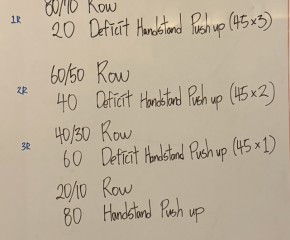 80/70 Row
1R 20 Deficit Handstand Push up (45x3)
60/50 Row
2R 40 Deficit Handstand Push up (45x2)
40/30 Row
3R 60 Deficit Handstand Push up (45x1)
20/10 Row
80 Handstand Push up